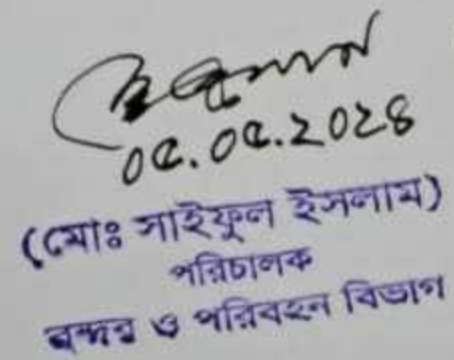 ০৫.০৫.২০২৪
(মোঃ সাইফুল ইসলাম)
পরিচালক
বন্দর ও পরিবহন বিভাগ